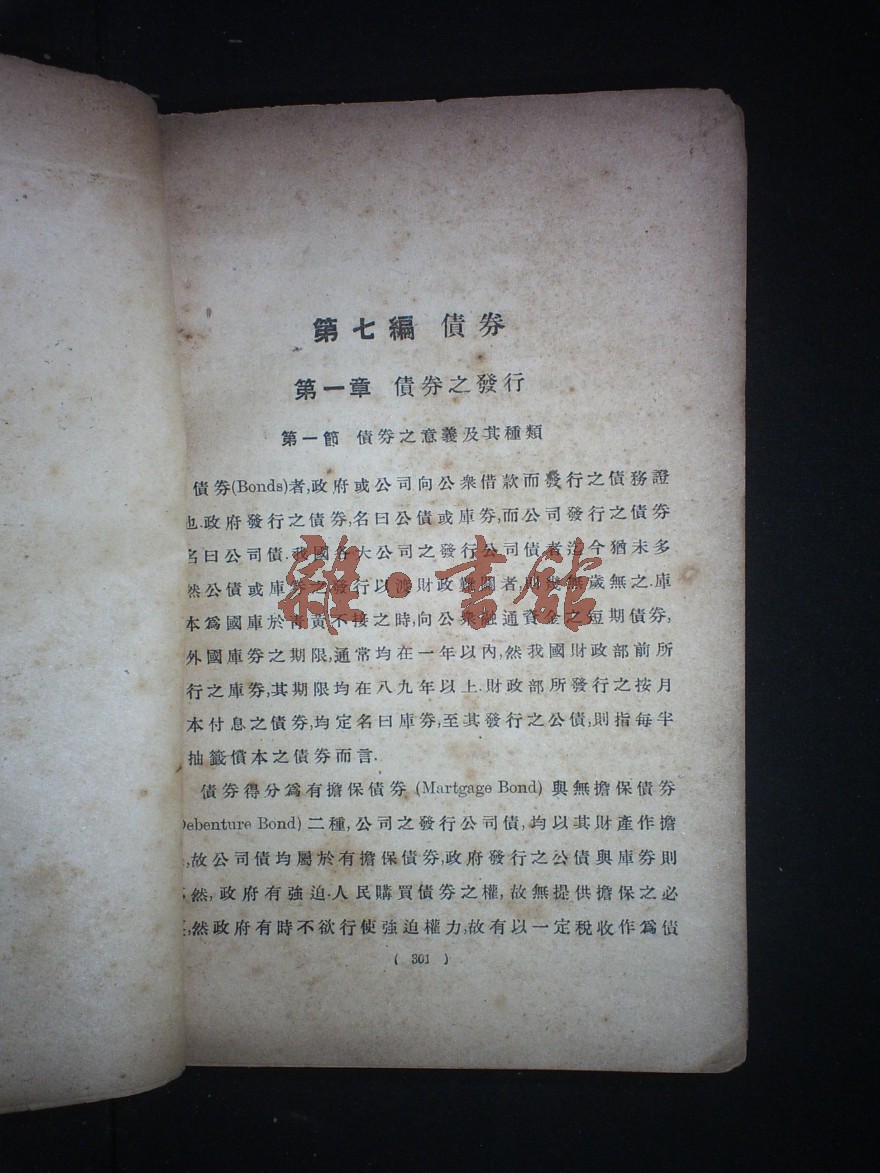 第七編 債券
第一章 債券之發行
第一節 債券之意義及其種類
債券(Bonds)者,政府或公司向公衆借款而發行之債務證
也.政府發行之債券,名曰公債或庫券,而公司發行之債券
名曰公司債.我國各大公司之發行公司債者迄今猶未多
然公債或庫券之發行以渡財政難關者,則幾無歲無之.庫
本爲國庫於靑黃不接之時,向公衆融通資金之短期債券,
外國庫券之期限,通常均在一年以內,然我國財政部前所
行之庫券,其期限均在八九年以上.財政部所發行之按月
本付息之債券,均定名曰庫券,至其發行之公債,則指每半
抽籤償本之債券而言.
債券得分爲有擔保債券 (Martgage Bond) 與無擔保債券
ebenture Bond) 二種,公司之發行公司債,均以其財產作擔
,故公司債均屬於有擔保債券,政府發行之公債與庫券則
然,政府有強迫.人民購買債券之權,故無提供擔保之必
,然政府有時不欲行使強迫權力,故有以一定稅收作爲債
( 301 )
雜·書館